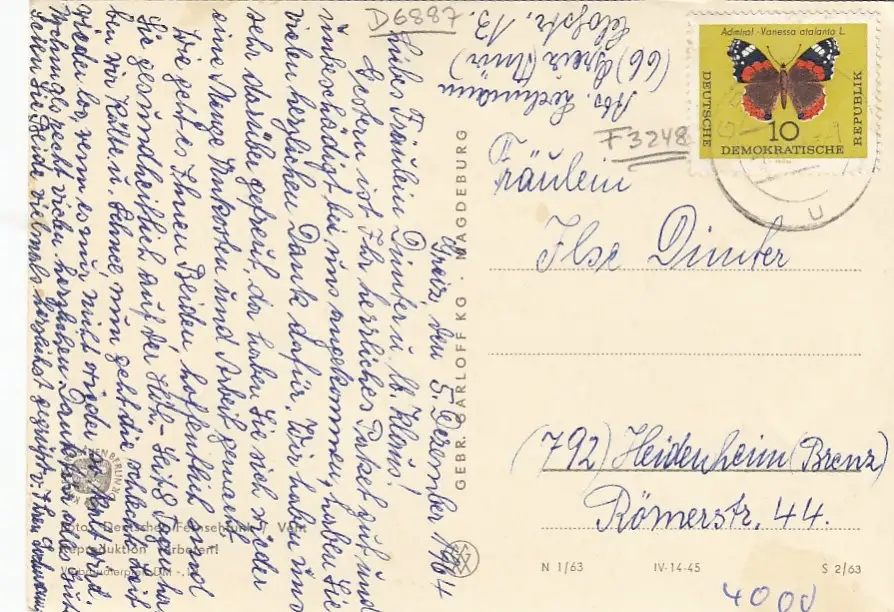 Greiz, den 5. Dezember 1964
Liebes Fräulein Dimter u. lb. Klaus!
Gestern ist Ihr herrliches Paket gut und
unbeschädigt bei uns angekommen, haben Sie
vielen herzlichen Dank dafür. Wir haben uns
sehr darüber gefreut, da haben Sie sich wieder
eine Menge Unkosten und Arbeit gemacht.
Wie geht es Ihnen Beiden hoffentlich sind
Sie gesundheitlich auf der Höh. Seit 8 Tagen ha-
ben wir Kälte u. Schnee, nun geht die schlechte Zeit
wieder los, wenn es nur nicht wieder so
Nochmals recht vielen herzlichen Dank für alles Gute
Sie Beide vielmals herzlichst gegrüßt v. Ihren
Abs. Lochmann
(66) Greiz (Thür)
13.
D6887
F3248
Admiral · Vanessa atalanta L.
DEUTSCHE
DEMOKRATISCHE
REPUBLIK
10
Fräulein
Ilse Dimter
(792) Heidenheim (Brenz)
Römerstr. 44.
GEBR. GARLOFF KG · MAGDEBURG
Foto: Deutscher Fernsehfunk / Vent
Reproduktion verboten!
N 1/63
IV-14-45
S 2/63
4000